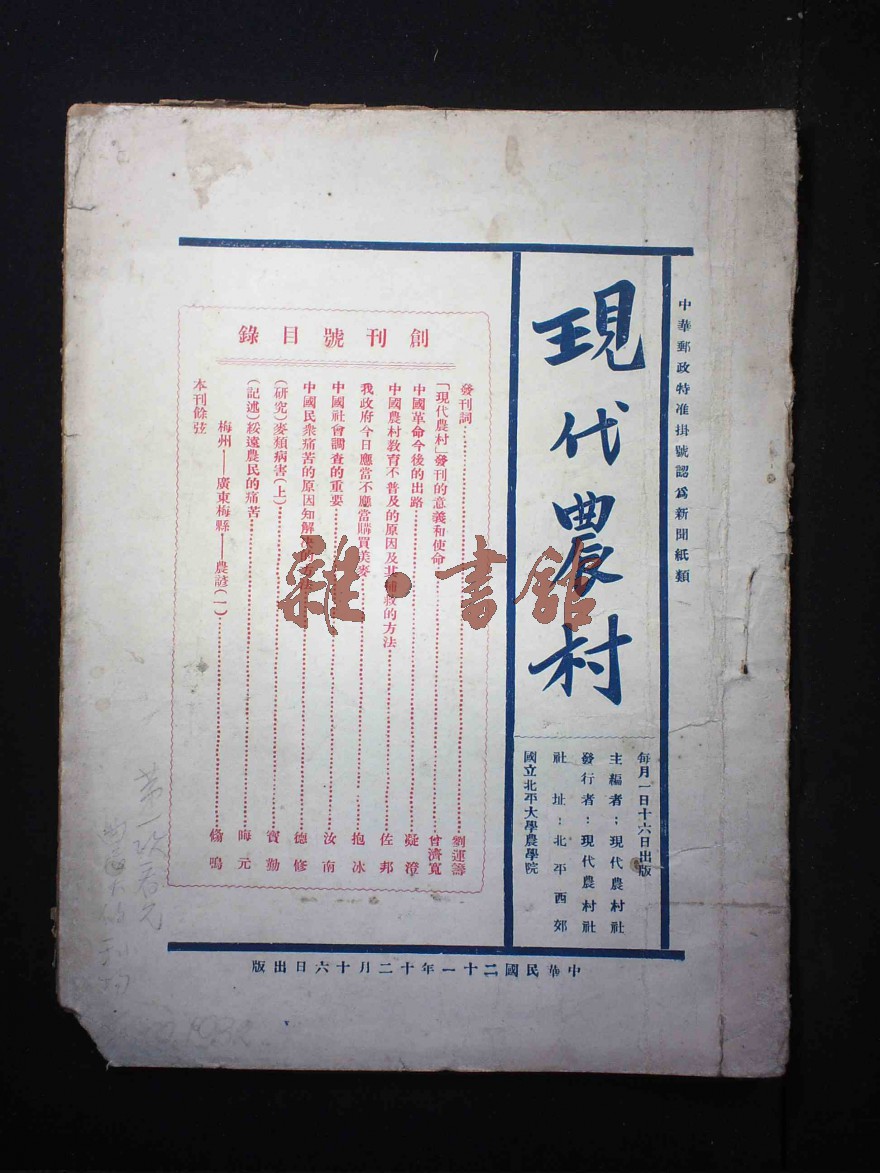 中華郵政特准掛號認爲新聞紙類
現代農村
每月一日十六日出版
主編者：現代農村社
發行者：現代農村社
社址：北平西郊
國立北平大學農學院
創刊號目錄
發刊詞………劉運籌
「現代農村」發刊的意義和使命………曾濟寬
中國革命今後的出路………凝澄
中國農村教育不普及的原因及其補救的方法………佐邦
我政府今日應當不應當購買美麥………抱冰
中國社會調查的重要………汝南
中國民衆痛苦的原因知解………德修
(研究)麥類病害(上)………寶勤
(記述)綏遠農民的痛苦………晦元
梅州——廣東梅縣——農諺(一)………鳴
本刊餘弦
中華民國二十一年十二月十六日出版
雜·書館
第一次
1932